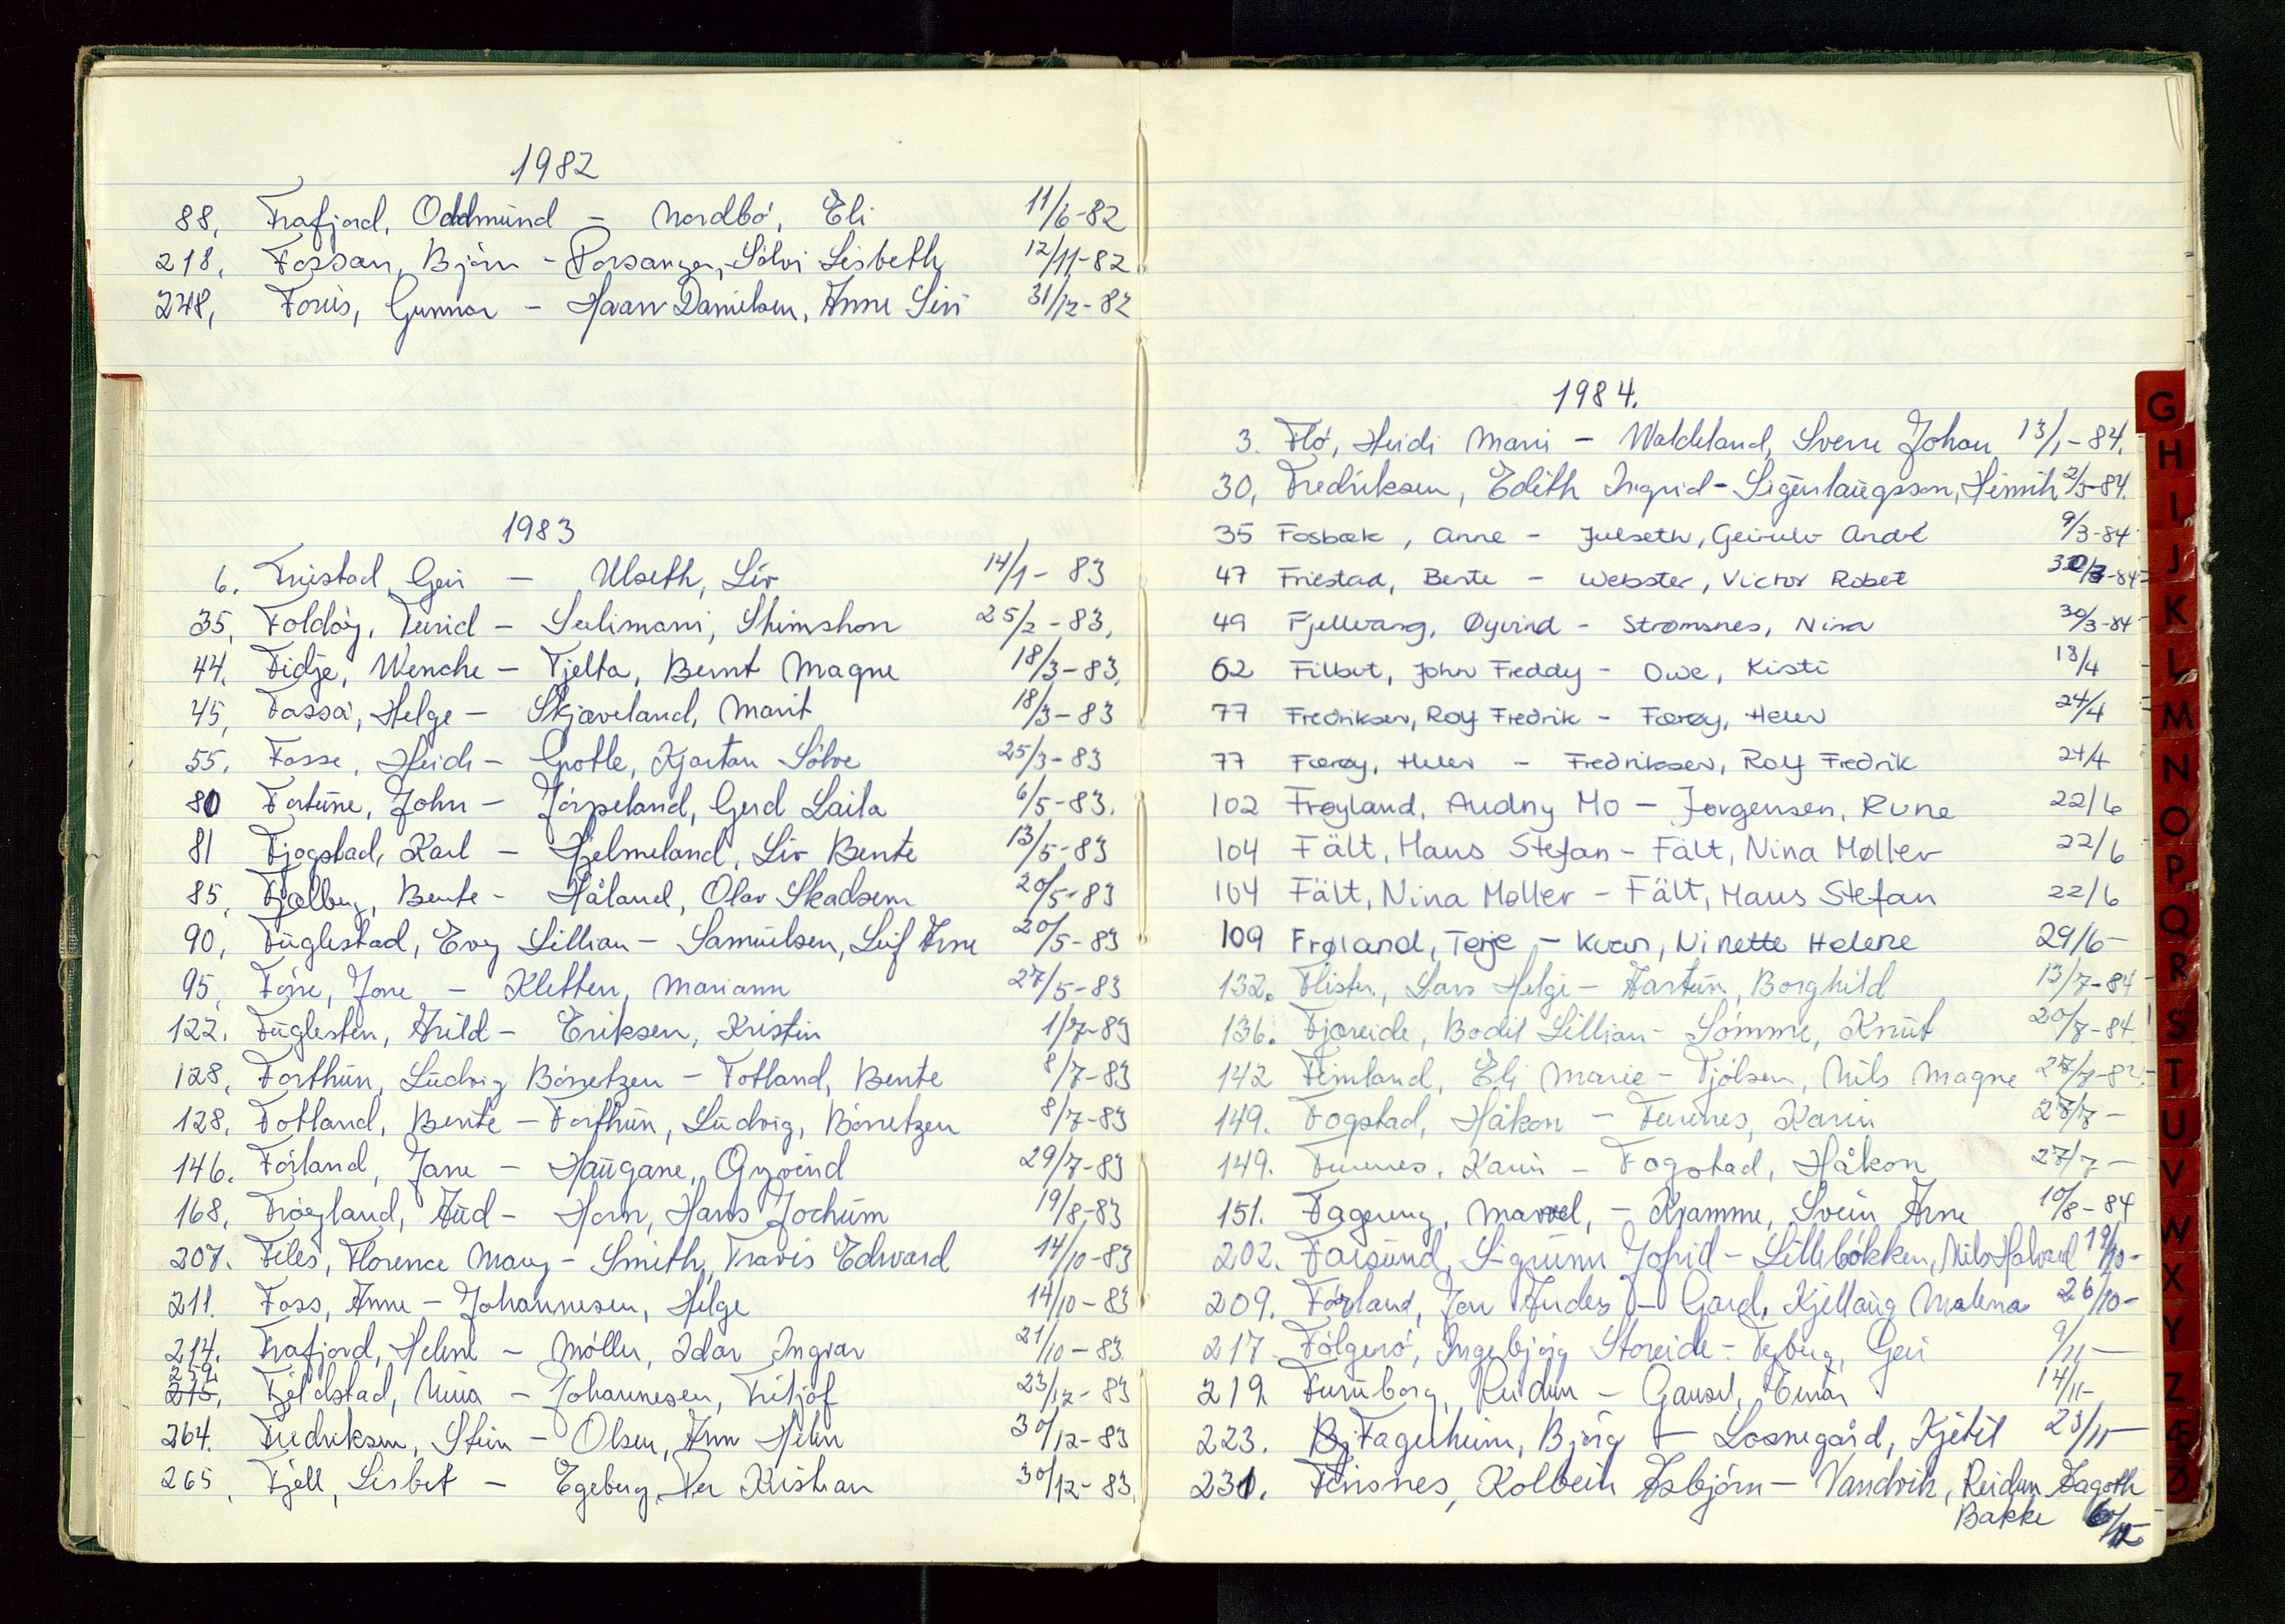 1982
88, Frafjord, Oddmund - Nordbø, Eli 11/6-82
218, Fossan, Bjørn - Porsanger, Sølvi Lisbeth 12/11-82
248, Foris, Gunnar - Haarr Danielsen, Anne Siri 31/12-82
1983
6. Friestad, Geir - Ulseth, Liv 14/1-83
35, Foldøy, Turid - Sulimani, Shimshon 25/2-83,
44, Fidje, Wenche - Tjelta, Bernt Magne 18/3-83,
45, Fasså, Helge - Skjæveland, Marit 18/3-83
55, Fosse, Heidi - Grotle, Kjartan Sølve 25/3-83
80 Fortune, John - Jørpeland, Gerd Laila 6/5-83.
81 Fjogstad, Karl - Hjelmeland, Liv Bente 13/5-83
85, Fjælberg, Bente - Håland, Olav Skadsem 20/5-83
90, Fuglestad, Evy Lillian - Samuelsen, Leif Arne 20/5-83
95, Førre, Jone - Kletten, Mariann 27/5-83
122, Fuglesten, Arild - Eriksen, Kristin 1/7-83
128, Forthun, Ludvig Børretzen - Fotland, Bente 8/7-83
128, Fotland, Bente - Forthun, Ludvig, Børretzen 8/7-83
146. Førland, Jane - Haugane, Øyvind 29/7-83
168, Frøyland, Aud - Horn, Hans Jochum 19/8-83
207. Files, Florence Mary - Smith, Travis Edward 14/10-83
211. Foss, Anne - Johannesen, Helge 14/10-83
214. Frafjord, Helene - Møller, Idar Ingvar 21/10-83
259
215, Fjeldstad, Nina - Johannesen, Fritjof 23/12-83
264. Fredriksen, Stein - Olsen, Ann Helen 30/12-83
265, Fjell, Lisbet - Egeberg, Per Kristian 30/12-83,
1984.
3. Flø, Heidi Marie - Waldeland, Sverre Johan 13/1-84.
30, Fredriksen, Edith Ingrid - Sigurlaugsson, Hinrik 2/3-84.
35 Fosbæk, Anne - Julseth, Geirulv André 9/3-84
47 Friestad, Bente - Webster, Victor Robet 30/3-84
49 Fjellvang, Øyvind - Strømsnes, Nina 30/3-84
62 Filbert, John Freddy - Owe, Kirsti 13/4
77 Fredriksen, Rolf Fredrik - Færøy, Helen 24/4
77 Færøy, Helen - Fredriksen, Rolf Fredrik 24/4
102 Frøyland, Audny Mo - Jørgensen, Rune 22/6
104 Fält, Hans Stefan - Fält, Nina Møller 22/6
104 Fält, Nina Møller - Fält, Hans Stefan 22/6
109 Frøland, Terje - Kvan, Ninette Helene 29/6-
132. Flister, Lars Helge - Aartun, Borghild 13/7-84
136. Fjæreide, Bodil Lillian - Sømme, Knut 20/7-84
142 Feimland, Eli Marie - Tjølsen, Nils Magne 27/7-82
149. Fogstad, Håkon - Furenes, Karin 27/7-
149. Furenes, Karin - Fogstad, Håkon 27/7-
151. Fagereng, Marvel, - Kramme, Svein Arne 10/8-84
202. Farsund, Sigrunn Jofrid - Lillebøkken, Nils Halvard 19/10-
209. Førland, Jon Anders - Gard, Kjellaug Malena 26/10-
217 Følgerø, Ingebjørg Storeide - Tegberg, Geir 9/11-
219 Furuborg, Reidun - Gausel, Einar 14/11-
223. Bj Fagerheim, Bjørg - Losnegård, Kjetil 23/11-
231. Finsnes, Kolbein Asbjørn - Vandvik, Reidun Hagoth
Bakke 6/12
G
H
I
J
K
L
M
N
O
P
Q
R
S
T
U
V
W
X
Y
Z
Æ
Ø